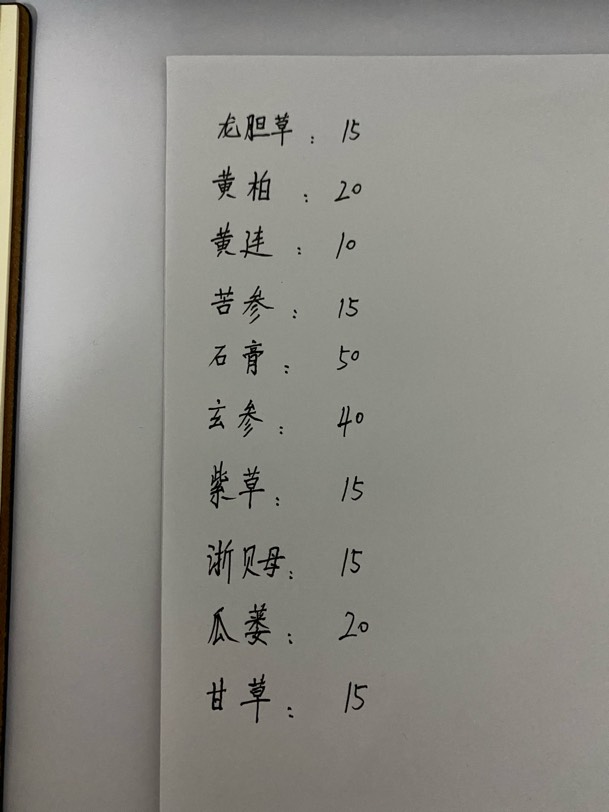 龙胆草：15
黄柏：20
黄连：10
苦参：15
石膏：50
玄参：40
紫草：15
浙贝母：15
瓜蒌：20
甘草：15